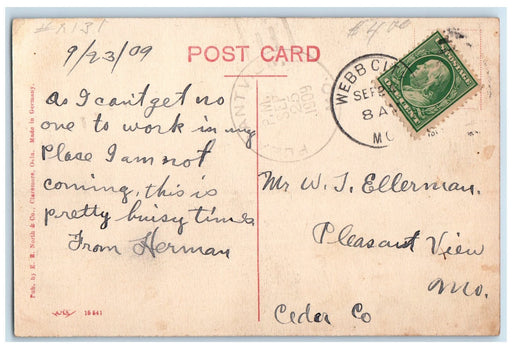 #R131
$4.00
9/23/09
POST CARD
WEBB CITY
SEP
8 A
MO
1909
As I can't get no
one to work in my
Place I am not
coming, this is
pretty buisy times
From Herman
Mr W. J. Ellerman.
Pleasant View
Mo.
Cedar Co
Pub. by E. B. North & Co., Claremore, Okla. Made in Germany.
16541